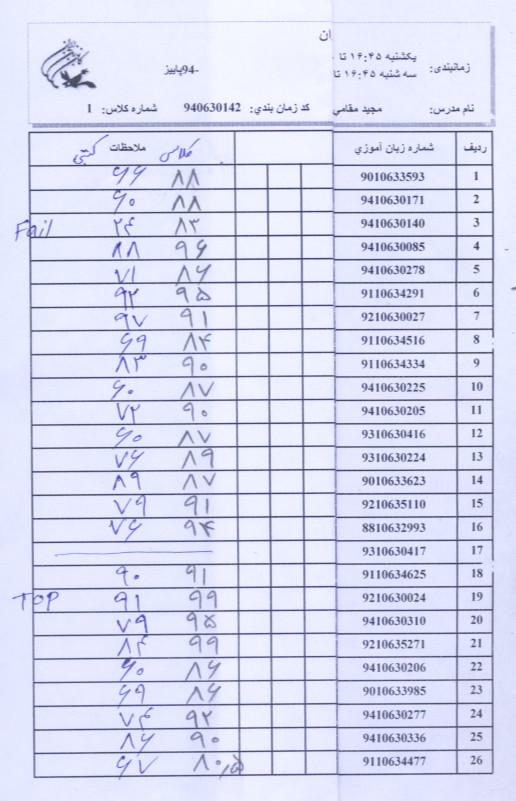 زمانبندی: یکشنبه ۱۶:۴۵ تا
سه شنبه ۱۶:۴۵ تا
-94پاییز
نام مدرس: مجید مقامی کد زمان بندی: 940630142 شماره کلاس: 1
ردیف شماره زبان آموزي کلاس ملاحظات کتبی
1 9010633593 ۸۸ ۶۶
2 9410630171 ۸۸ ۶۰
3 9410630140 ۸۳ ۲۴ Fail
4 9410630085 ۹۶ ۸۸
5 9410630278 ۸۶ ۷۱
6 9110634291 ۹۵ ۹۲
7 9210630027 ۹۱ ۹۷
8 9110634516 ۸۴ ۶۹
9 9110634334 ۹۰ ۸۳
10 9410630225 ۸۷ ۶۰
11 9410630205 ۹۰ ۷۲
12 9310630416 ۸۷ ۶۰
13 9310630224 ۸۹ ۷۶
14 9010633623 ۸۷ ۸۹
15 9210635110 ۹۱ ۷۹
16 8810632993 ۹۴ ۷۶
17 9310630417
18 9110634625 ۹۱ ۹۰
19 9210630024 ۹۹ ۹۱ TOP
20 9410630310 ۹۵ ۷۹
21 9210635271 ۹۹ ۸۴
22 9410630206 ۸۶ ۶۰
23 9010633985 ۸۶ ۶۹
24 9410630277 ۹۲ ۷۴
25 9410630336 ۹۰ ۸۶
26 9110634477 ۸۰٫۵ ۶۷